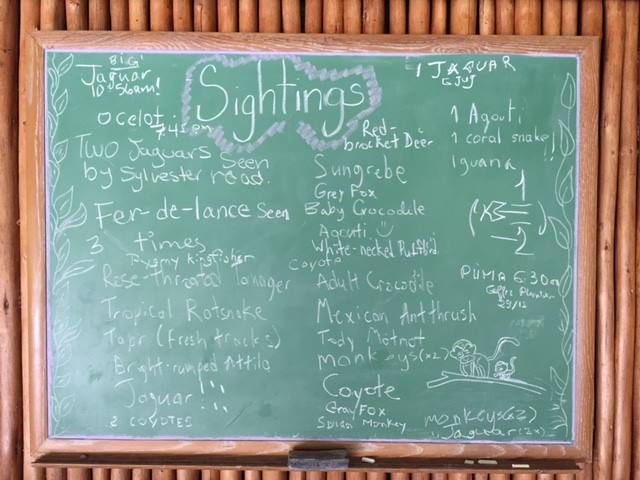 Sightings
BIG
Jaguar
10:56am!
Ocelot
7:45 pm
Two Jaguars Seen
by Sylvester road.
Fer-de-lance Seen
3 times
Pygmy kingfisher
Rose-throated Tanager
Tropical Ratsnake
Tapir (fresh tracks)
Bright-rumped Attila
Jaguar!!!
2 COYOTES
Red-
brocket Deer
Sungrebe
Grey Fox
Baby Crocodile
Agouti
White-necked Puffbird
Coyote
Adult Crocodile
Mexican Antthrush
Tody Motmot
monkeys(x2)
Coyote
Gray Fox
Spider Monkey
1 JAGUAR
1 Agouti
1 coral snake!!
Iguana
1
2
PUMA 6:30am
29/12
monkeys(x2)
Jaguar(2x)